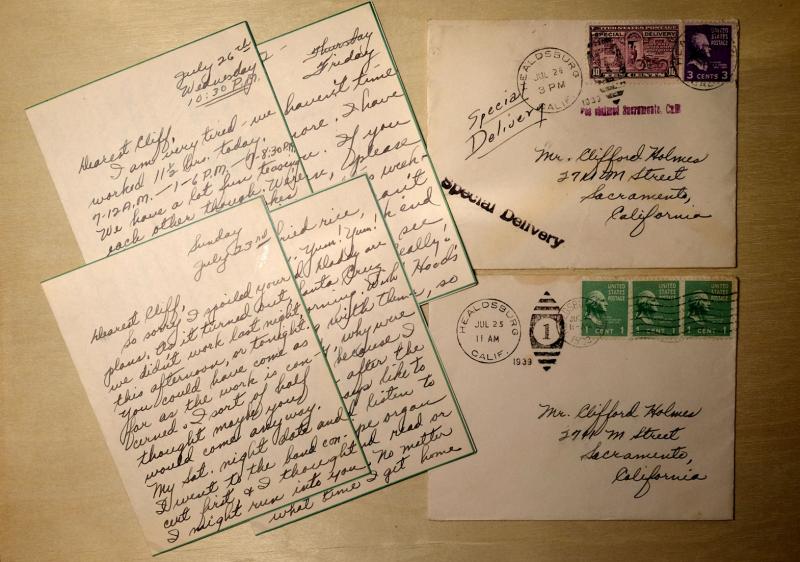 July 26th
Wednesday
10:30 P.M.
Dearest Cliff,
I am very tired - we
worked 11½ hrs. today.
7-12 A.M. - 1-6 P.M. - 7-8:30 P.M.
We have a lot fun teasing
each other though.
Thursday
Friday
haven't time
more. I have
If you
please
week-
can't
end
see
really!
Hoods'
Sunday
July 23rd
Dearest Cliff,
So sorry I spoiled your
plans. As it turned out,
we didn't work last night,
this afternoon, or tonight.
You could have come as
far as the work is con-
cerned. I sort of half
thought maybe you
would come anyway.
My Sat. night date and
I went to the band con-
cert first & I thought
I might run into you.
fried rice,
Yum! Yum!
Daddy are
Santa Cruz
with them, so
why were
because I
after the
like to
listen to
pipe organ
read or
No matter
what time I get home
UNITED STATES POSTAGE
SPECIAL DELIVERY
10 TEN CENTS 10
UNITED
STATES
POSTAGE
3 CENTS 3
HEALDSBURG
JUL 26
3 PM
1939
CALIF.
Special
Delivery
Sacramento, Calif
Special Delivery
Mr. Clifford Holmes
M Street
Sacramento,
California
HEALDSBURG
JUL 25
11 AM
CALIF.
1939
1
UNITED
STATES
POSTAGE
1 CENT 1
UNITED
STATES
POSTAGE
1 CENT 1
UNITED
STATES
POSTAGE
1 CENT 1
Mr. Clifford Holmes
M Street
Sacramento,
California